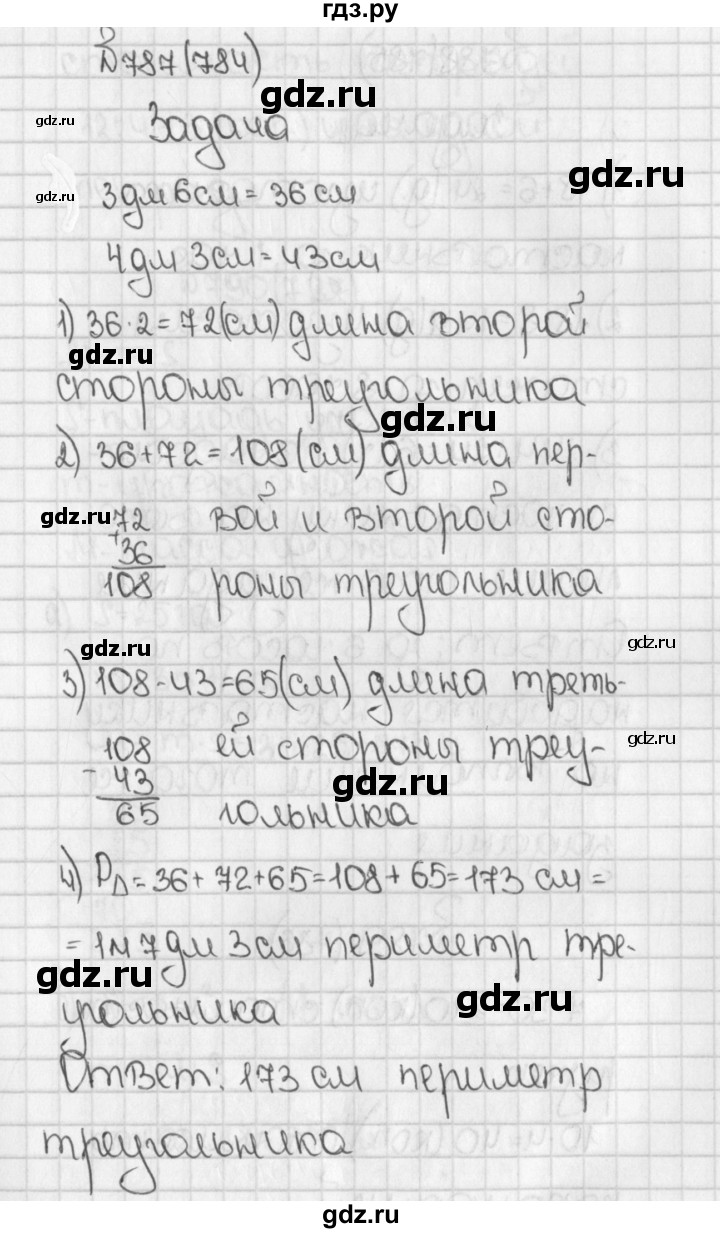 гдз.ру
№787(784)
gdz.ru
gdz.ru
Задача
gdz.ru
gdz.ru
3дм 6см = 36 см
4дм 3см = 43см
1) 36·2=72(см) длина второй
gdz.ru
стороны треугольника
gdz.ru
2) 36+72=108(см) длина пер-
gdz.ru
72 вой и второй сто-
+
36
108 роны треугольника
gdz.ru
gdz.ru
3) 108-43=65(см) длина треть-
gdz.ru
108 ей стороны треу-
-
43
gdz.ru
65 гольника
4) P∆=36+72+65=108+65=173 см =
=1м 7дм 3см периметр тре-
gdz.ru
gdz.ru
угольника
Ответ: 173 см периметр
треугольника
gdz.ru